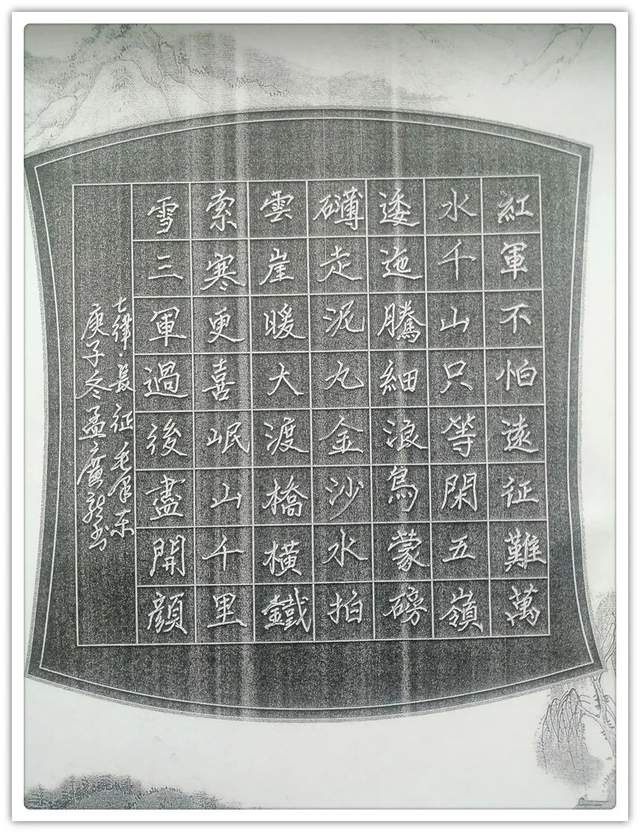 紅軍不怕遠征難萬
水千山只等閑五嶺
逶迤騰細浪烏蒙磅
礴走泥丸金沙水拍
雲崖暖大渡橋橫鐵
索寒更喜岷山千里
雪三軍過後盡開顔
七律·長征 毛泽东
庚子冬孟廣書